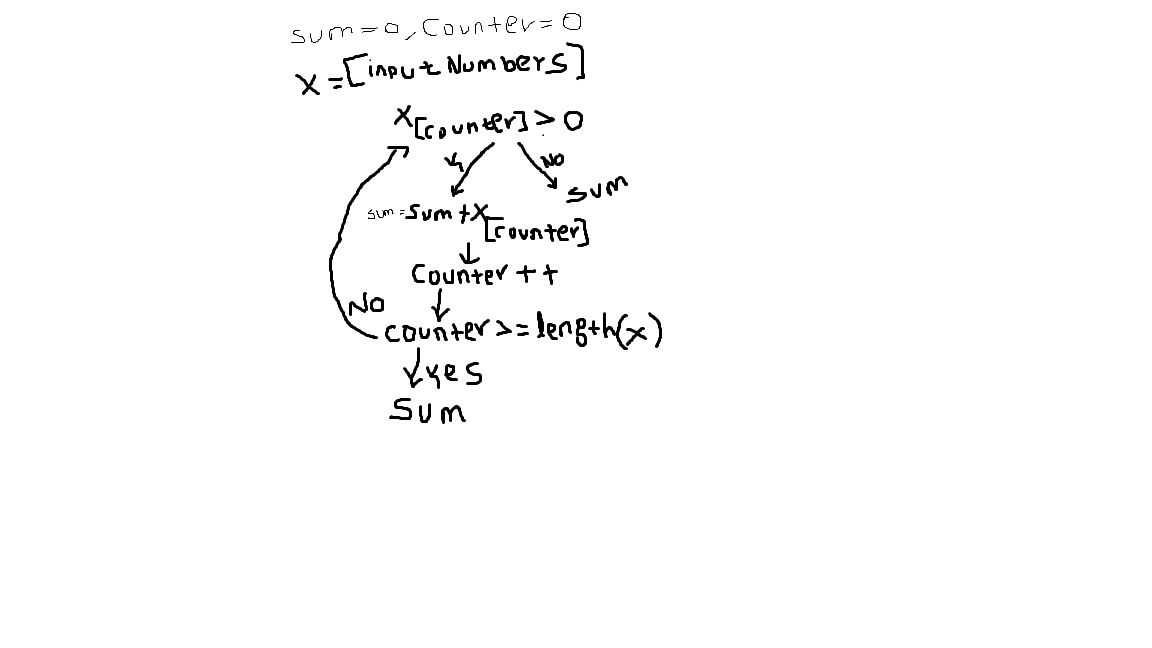 sum=0, Counter=0
x=[input Numbers]
x[counter]>0
y
No
sum
sum=sum+x[counter]
Counter++
No
counter>=length(x)
yes
sum